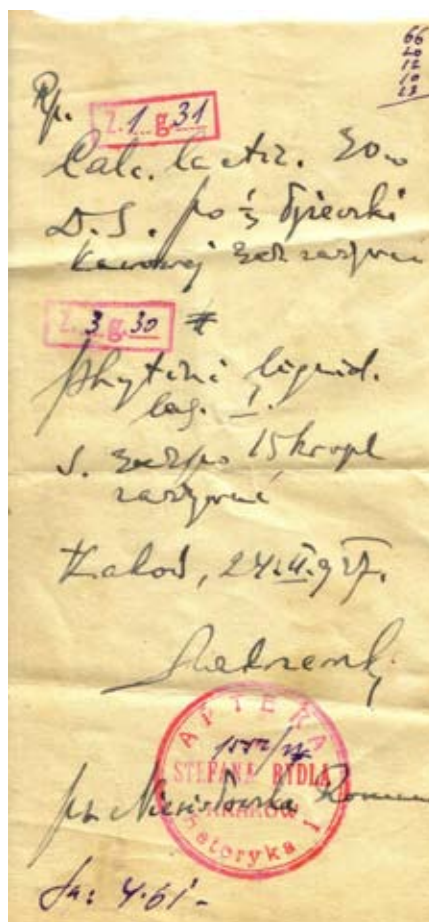 66
20
12
10
23
Rp.
Z. 1 g. 31
Calc. lactic. 30.0
D.S. po ½ łyżeczki
kawowej 3 x dz. zażywać
Z. 3 g. 30 #
Phytini liquid.
lag. I.
S. 3 x dz. po 15 kropl
zażywać
Kraków, 24.II.927.
APTEKA
1552/27
STEFANA RYDLA
KRAKÓW
Retoryka 1
4.61 -